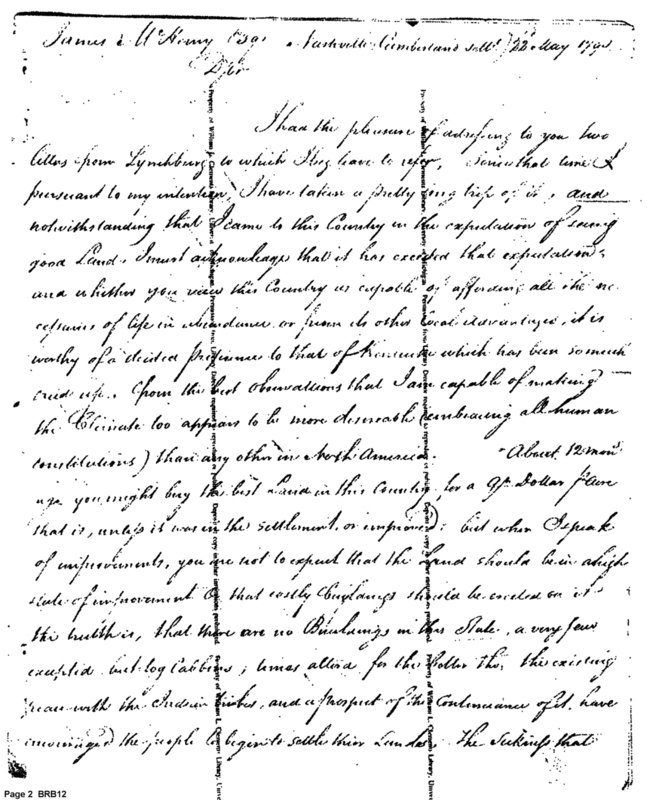 James McHenry Esqr Nashville Cumberland Settlt 22d May 1795
I had the pleasure of adressing to you two
letters from Lynchburg to which I beg leave to refer, Since that time I
pursuant to my intention, I have taken a pretty long trip of it, and
notwithstanding that I came to this Country in the expectation of seeing
good Land. I must acknowledge that it has exceeded that expectation;
and whether you view this Country as capable of affording all the ne
cessaries of life in abundance or from its other local advantages, it is
worthy of a decided preference to that of Kentucke which has been so much
cried up. from the best observations that I am capable of making
the Climate too appears to be more desireable (embracing all human
constitutions) than any other in North America. About 12 mons
ago you might buy the best Land in this Country for a Dollar
that is, unless it was in the settlement, or improved: but when I speak
of improvements, you are not to expect that the Land should be in a high
state of improvement or that costly Buildings should be erected on it
the truth is, that there are no Buildings in this State, a very few
excepted but log Cabbins; times alter'd for the better tho; the existing
peace with the Indian tribes, and a prospect of the Continuance of it, have
encouraged the people to begin to settle their Lands. The Sickness that
Page 2 BRB12